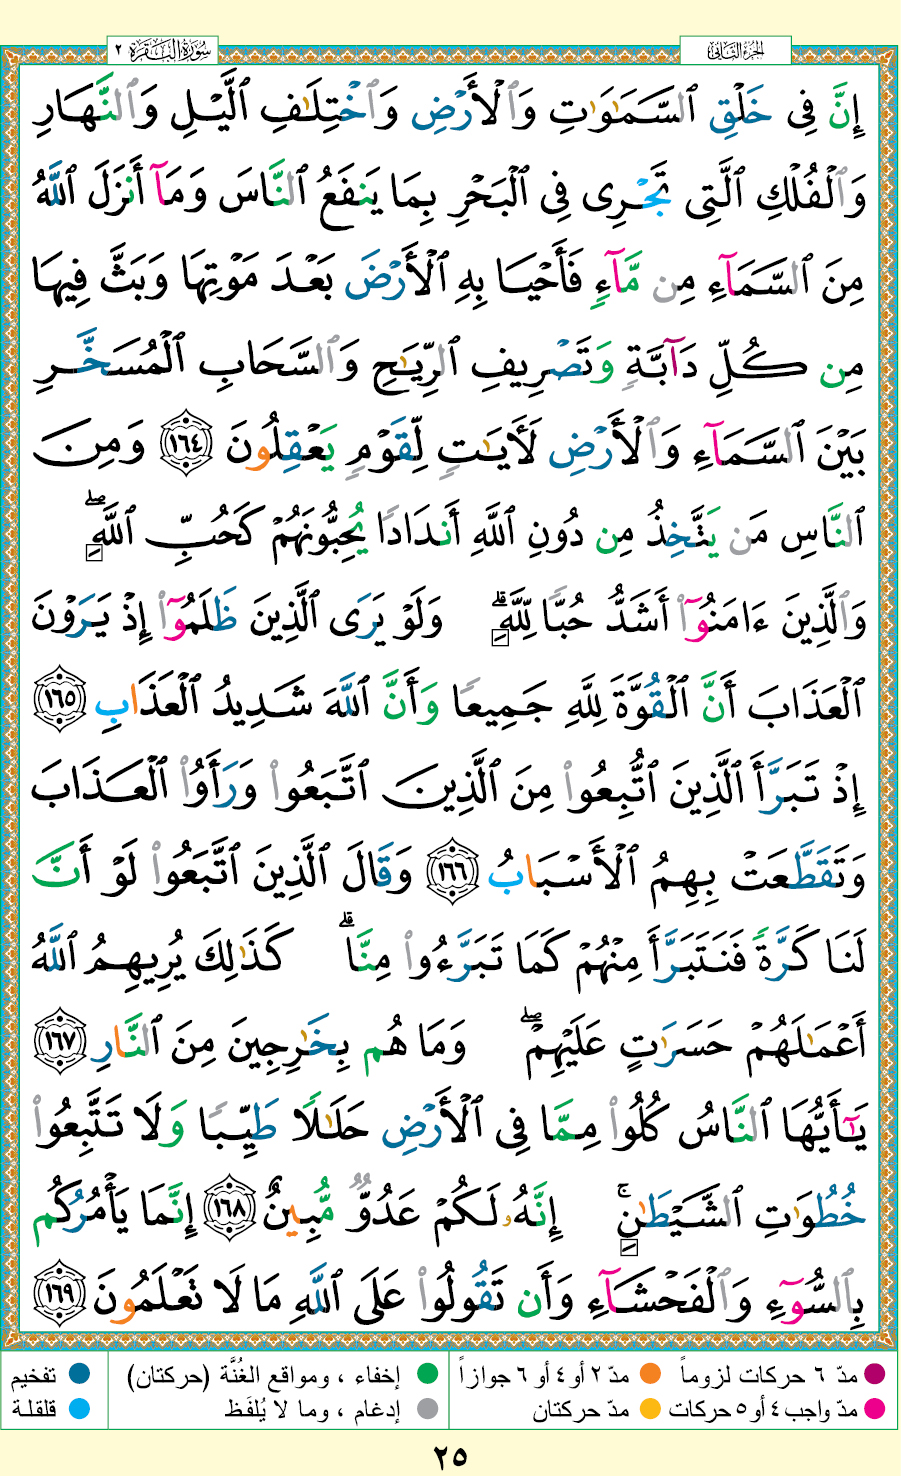 سُورَةُ البَقَرَةِ ٢
الجزء الثاني
إِنَّ فِى خَلْقِ ٱلسَّمَـٰوَٰتِ وَٱلْأَرْضِ وَٱخْتِلَـٰفِ ٱلَّيْلِ وَٱلنَّهَارِ
وَٱلْفُلْكِ ٱلَّتِى تَجْرِى فِى ٱلْبَحْرِ بِمَا يَنفَعُ ٱلنَّاسَ وَمَآ أَنزَلَ ٱللَّهُ
مِنَ ٱلسَّمَآءِ مِن مَّآءٍ فَأَحْيَا بِهِ ٱلْأَرْضَ بَعْدَ مَوْتِهَا وَبَثَّ فِيهَا
مِن كُلِّ دَآبَّةٍ وَتَصْرِيفِ ٱلرِّيَـٰحِ وَٱلسَّحَابِ ٱلْمُسَخَّرِ
بَيْنَ ٱلسَّمَآءِ وَٱلْأَرْضِ لَـَٔايَـٰتٍ لِّقَوْمٍ يَعْقِلُونَ ١٦٤ وَمِنَ
ٱلنَّاسِ مَن يَتَّخِذُ مِن دُونِ ٱللَّهِ أَندَادًا يُحِبُّونَهُمْ كَحُبِّ ٱللَّهِ ۖ
وَٱلَّذِينَ ءَامَنُوٓا۟ أَشَدُّ حُبًّا لِّلَّهِ ۗ وَلَوْ يَرَى ٱلَّذِينَ ظَلَمُوٓا۟ إِذْ يَرَوْنَ
ٱلْعَذَابَ أَنَّ ٱلْقُوَّةَ لِلَّهِ جَمِيعًا وَأَنَّ ٱللَّهَ شَدِيدُ ٱلْعَذَابِ ١٦٥
إِذْ تَبَرَّأَ ٱلَّذِينَ ٱتُّبِعُوا۟ مِنَ ٱلَّذِينَ ٱتَّبَعُوا۟ وَرَأَوُا۟ ٱلْعَذَابَ
وَتَقَطَّعَتْ بِهِمُ ٱلْأَسْبَابُ ١٦٦ وَقَالَ ٱلَّذِينَ ٱتَّبَعُوا۟ لَوْ أَنَّ
لَنَا كَرَّةً فَنَتَبَرَّأَ مِنْهُمْ كَمَا تَبَرَّءُوا۟ مِنَّا ۗ كَذَٰلِكَ يُرِيهِمُ ٱللَّهُ
أَعْمَـٰلَهُمْ حَسَرَٰتٍ عَلَيْهِمْ ۖ وَمَا هُم بِخَـٰرِجِينَ مِنَ ٱلنَّارِ ١٦٧
يَـٰٓأَيُّهَا ٱلنَّاسُ كُلُوا۟ مِمَّا فِى ٱلْأَرْضِ حَلَـٰلًا طَيِّبًا وَلَا تَتَّبِعُوا۟
خُطُوَٰتِ ٱلشَّيْطَـٰنِ ۚ إِنَّهُۥ لَكُمْ عَدُوٌّ مُّبِينٌ ١٦٨ إِنَّمَا يَأْمُرُكُم
بِٱلسُّوٓءِ وَٱلْفَحْشَآءِ وَأَن تَقُولُوا۟ عَلَى ٱللَّهِ مَا لَا تَعْلَمُونَ ١٦٩
مدّ ٦ حركات لزوماً مدّ ٢ أو ٤ أو ٦ جوازاً إخفاء ، ومواقع الغُنَّة (حركتان) تفخيم
مدّ واجب ٤ أو ٥ حركات مدّ حركتان إدغام ، وما لا يُلفَظ قلقلة
٢٥